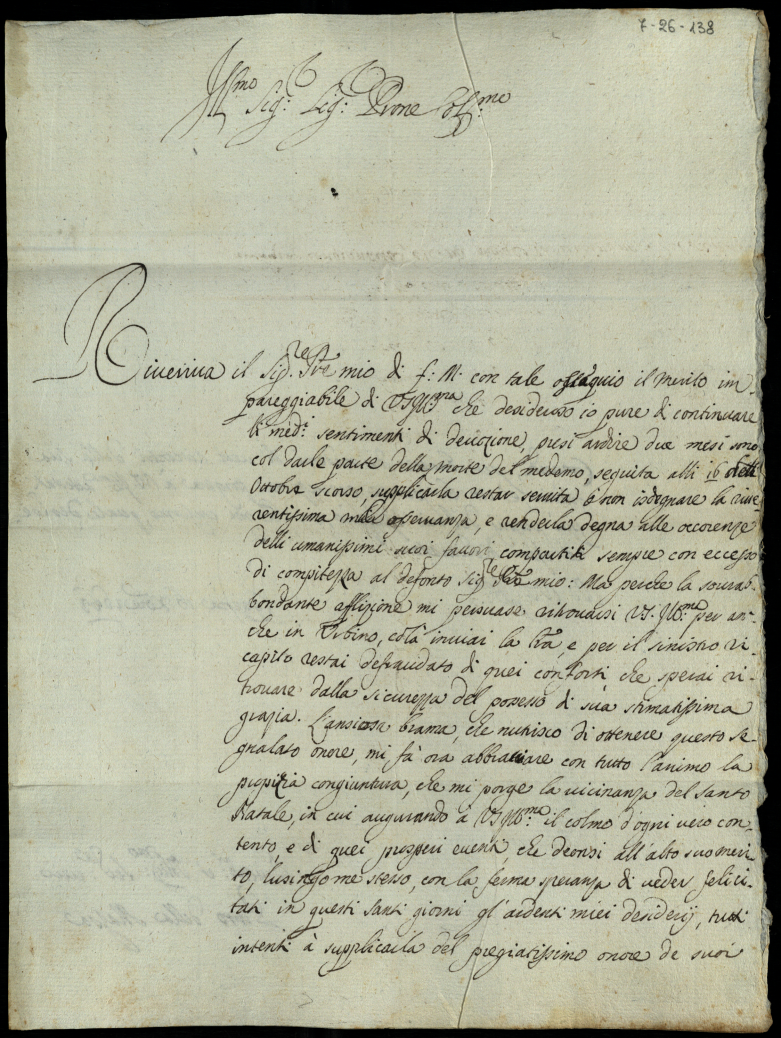 7-26-138
Ill.mo Sig.r Sig.r Prone Col.mo
Riveriva il Sig.re Pre mio di f: M: con tale ossequio il merito im-
pareggiabile di VS Ill.ma che desideroso io pure di continuare
li med.i sentimenti di devozione, presi ardire due mesi sono
col darle parte della morte del medemo, seguita alli 16
Ottobre scorso, supplicarla restar servita à non isdegnare la rive-
rentissima mia osservanza, e renderla degna alle occorenze
delli umanissimi suoi favori compartiti sempre con eccesso
di compitezza al defonto Sig.re Pre mio: Ma perche la sovrab-
bondante afflizione mi persuase ritrovarsi VS. Ill.ma per an-
che in Urbino, colà inviai la lra, e per il sinistro ri-
capito restai defraudato di quei conforti che sperai ri-
trovare dalla sicurezza del possesso di sua stimatissima
grazia. L'ansiosa brama, che nutrisco di ottenere questo se-
gnalato onore, mi fà ora abbracciare con tutto l'animo la
propizia congiuntura, che mi porge la vicinanza del Santo
Natale, in cui augurando à VS Ill.ma il colmo d'ogni vero con-
tento, e di quei prosperi eventi, che deonsi all'alto suo meri-
to, lusingo me stesso, con la ferma speranza di veder felici-
tati in questi santi giorni gl'ardenti miei desiderij, tutti
intenti à supplicarla del pregiatissimo onore de suoi